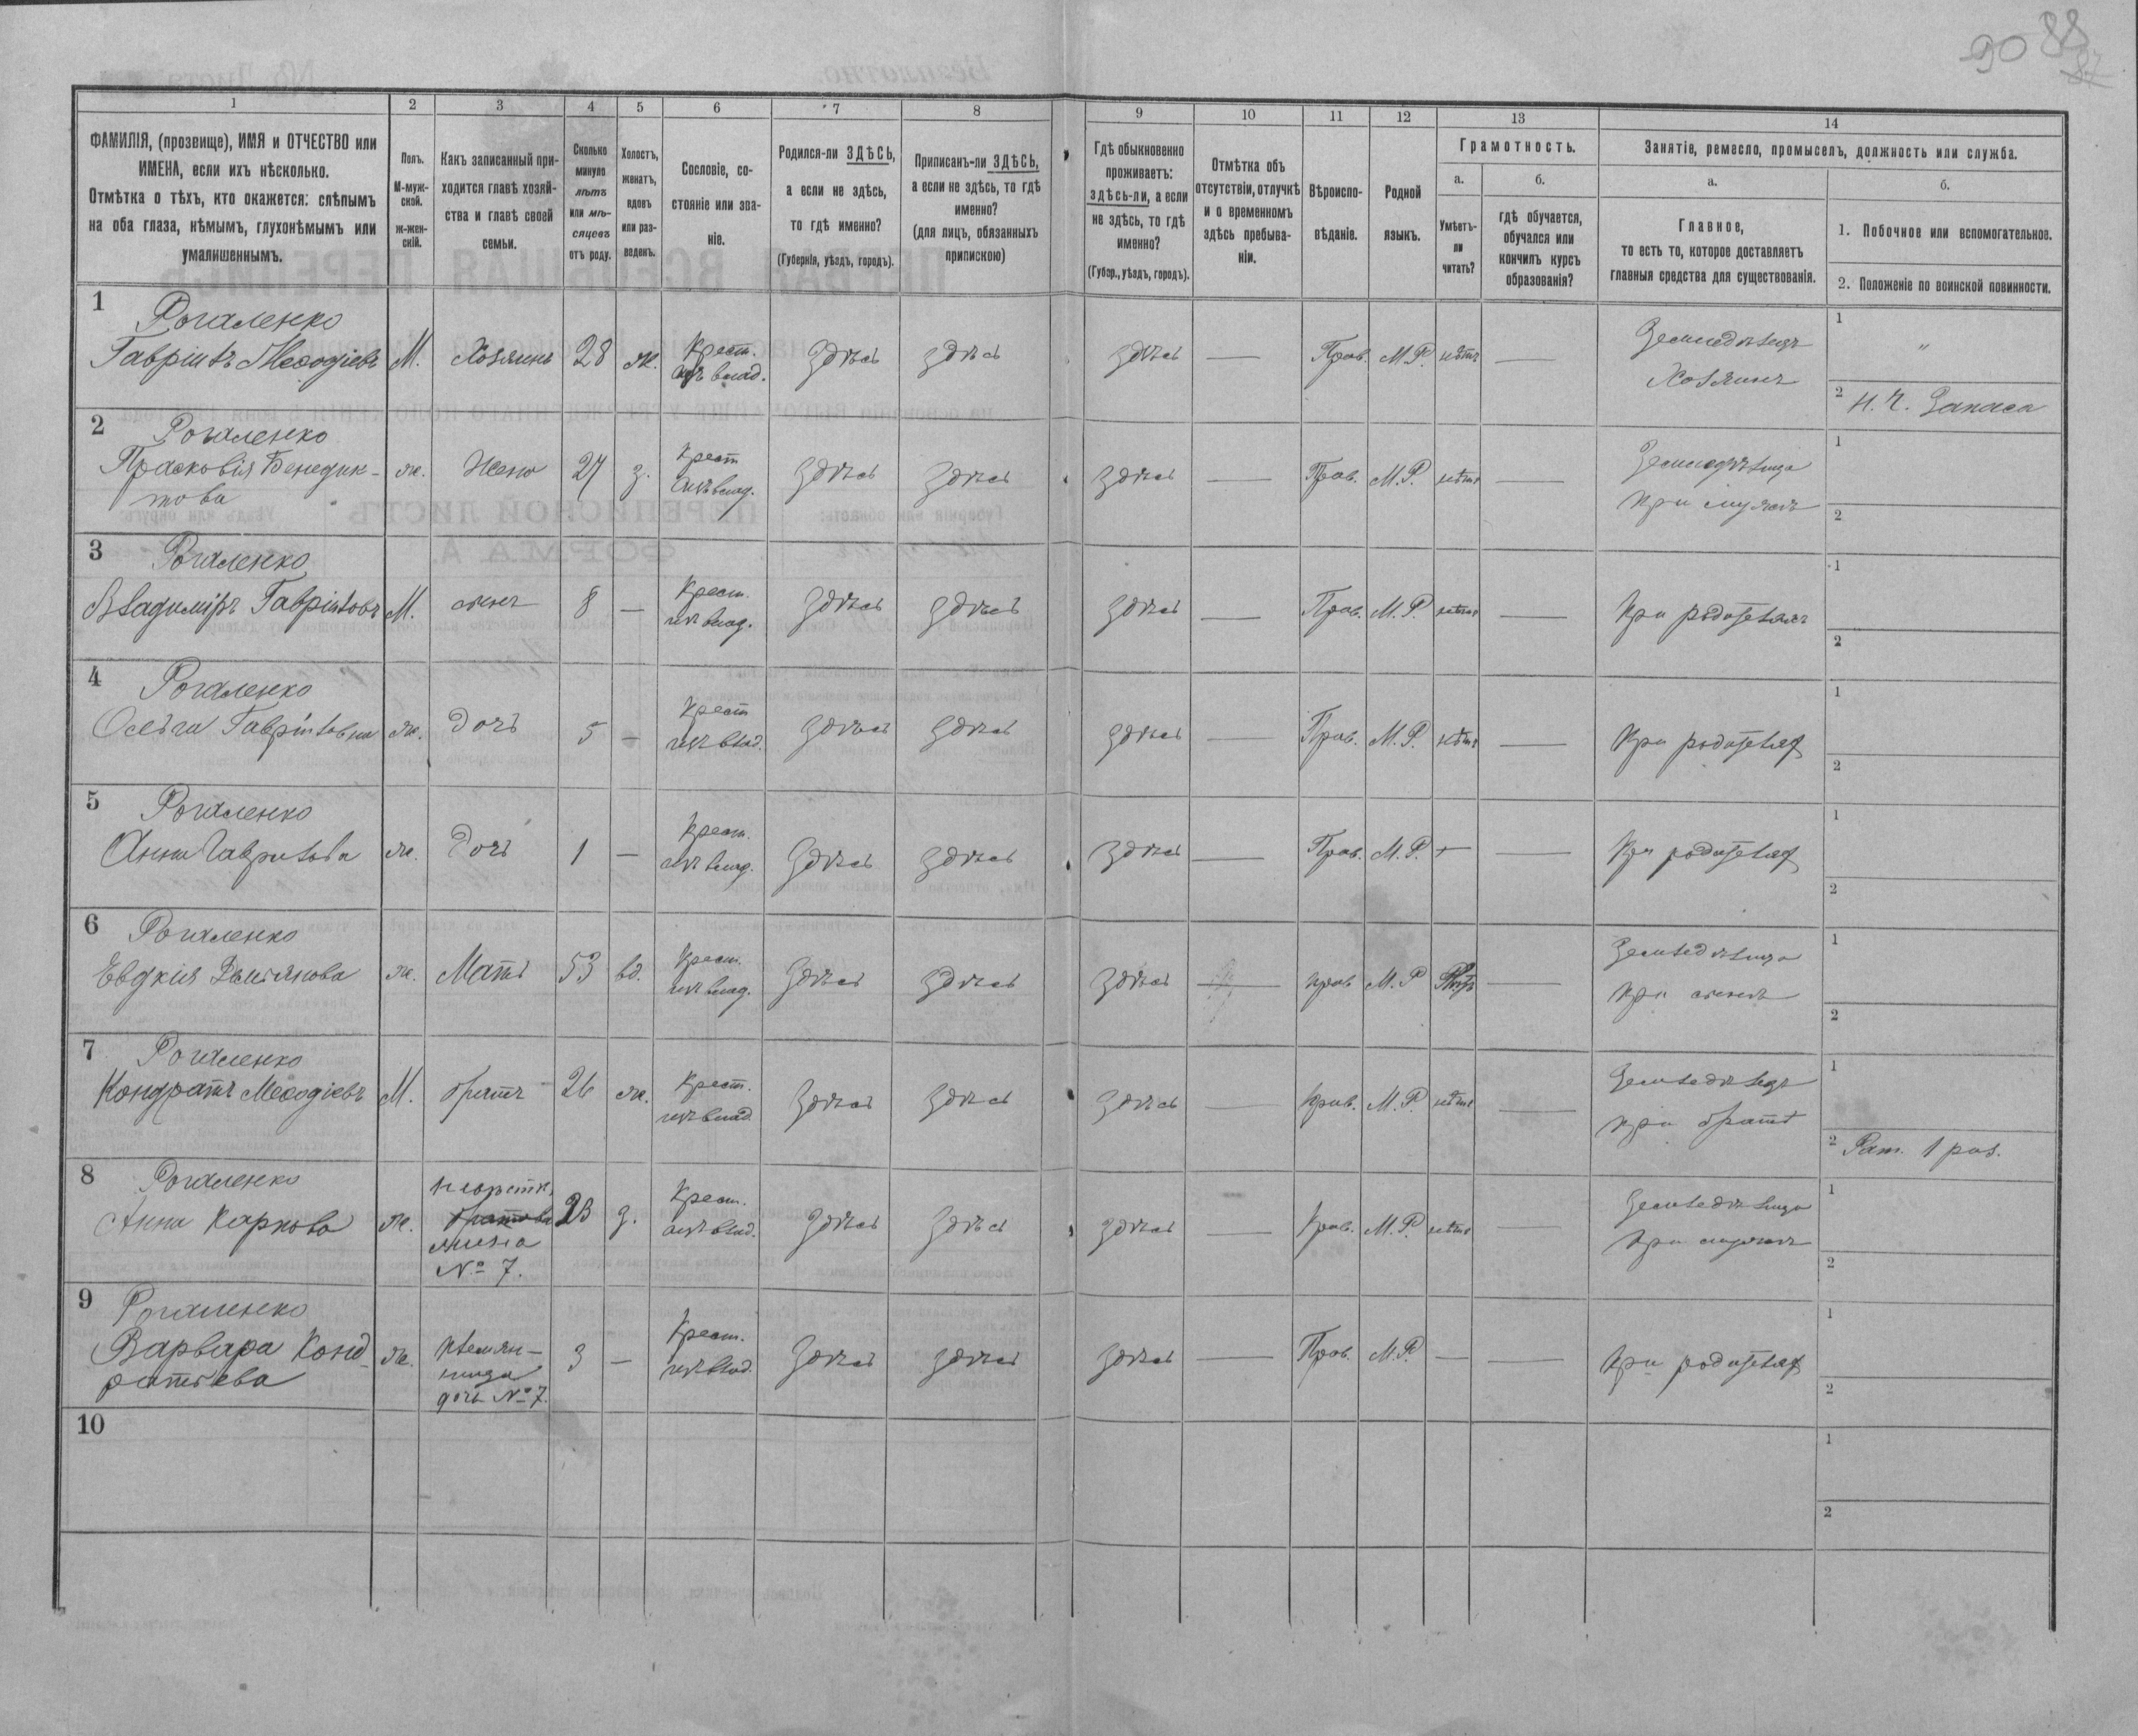 90 88
87
1 2 3 4 5 6 7 8 9 10 11 12 13 14
ФАМИЛІЯ, (прозвище), ИМЯ и ОТЧЕСТВО или
ИМЕНА, если ихъ нѣсколько.
Отмѣтка о тѣхъ, кто окажется: слѣпымъ
на оба глаза, нѣмымъ, глухонѣмымъ или
умалишеннымъ.
Полъ.
М-муж-
ской.
ж-жен-
скій.
Какъ записанный при-
ходится главѣ хозяй-
ства и главѣ своей
семьи.
Сколько
минуло
лѣтъ
или мѣ-
сяцевъ
отъ роду.
Холостъ,
женатъ,
вдовъ
или раз-
веденъ.
Сословіе, со-
стояніе или зва-
ніе.
Родился-ли ЗДѢСЬ,
а если не здѣсь,
то гдѣ именно?
(Губернія, уѣздъ, городъ).
Приписанъ-ли ЗДѢСЬ,
а если не здѣсь, то гдѣ
именно?
(для лицъ, обязанныхъ
припискою)
Гдѣ обыкновенно
проживаетъ:
здѣсь-ли, а если
не здѣсь, то гдѣ
именно?
(Губер., уѣздъ, городъ).
Отмѣтка объ
отсутствіи, отлучкѣ
и о временномъ
здѣсь пребыва-
ніи.
Вѣроиспо-
вѣданіе.
Родной
языкъ.
Грамотность.
а.
Умѣетъ-
ли
читать?
б.
гдѣ обучается,
обучался или
кончилъ курсъ
образованія?
Занятіе, ремесло, промыселъ, должность или служба.
а.
Главное,
то есть то, которое доставляетъ
главныя средства для существованія.
б.
1. Побочное или вспомогательное.
2. Положеніе по воинской повинности.
1 Рогаленко
Гавріилъ Меѳодіевъ М. Хозяинъ 28 ж. Крест. изъ влад. здѣсь здѣсь здѣсь — Прав. М.Р. нѣтъ — Земледѣлецъ Хозяинъ
1 "
2 Н. Ч. Запаса
2 Рогаленко
Прасковія Бенедик-
това ж. Жена 27 з. Крест изъ влад. здѣсь здѣсь здѣсь — Прав. М.Р. нѣтъ — Земледѣлица при мужѣ
1
2
3 Рогаленко
Владиміръ Гавріиловъ М. сынъ 8 — Крест. изъ влад. здѣсь здѣсь здѣсь — Прав. М.Р. нѣтъ — При родителяхъ
1
2
4 Рогаленко
Ольга Гавріиловна ж. дочь 5 — Крест изъ влад. здѣсь здѣсь здѣсь — Прав. М.Р. нѣтъ — При родителях
1
2
5 Рогаленко
Анна Гаврилова ж. Дочь 1 — Крест. изъ влад. здѣсь здѣсь здѣсь — Прав. М.Р. — — При родителях
1
2
6 Рогаленко
Евдкія ж. Мать 53 вд. Крест. изъ влад. здѣсь здѣсь здѣсь — прав М.Р — Земледѣлица при сынѣ
1
2
7 Рогаленко
Кондратъ Меѳодіевъ М. братъ 26 ж. Крест. изъ влад. здѣсь здѣсь здѣсь — прав. М.Р. нѣтъ — Земледѣлецъ при братѣ
1
2 Рат. 1 раз.
8 Рогаленко
Анна Карпова ж. невѣстка братова жена № 7. 23 з. Крест. изъ влад. здѣсь здѣсь здѣсь — прав. М.Р. нѣтъ — Земледѣлица при мужѣ
1
2
9 Рогаленко
Варвара Конд-
ратьева ж. племян-
ница
дочь № 7. 3 — Крест. изъ влад. здѣсь здѣсь здѣсь — Прав. М.Р. — — при родителях
1
2
10
1
2